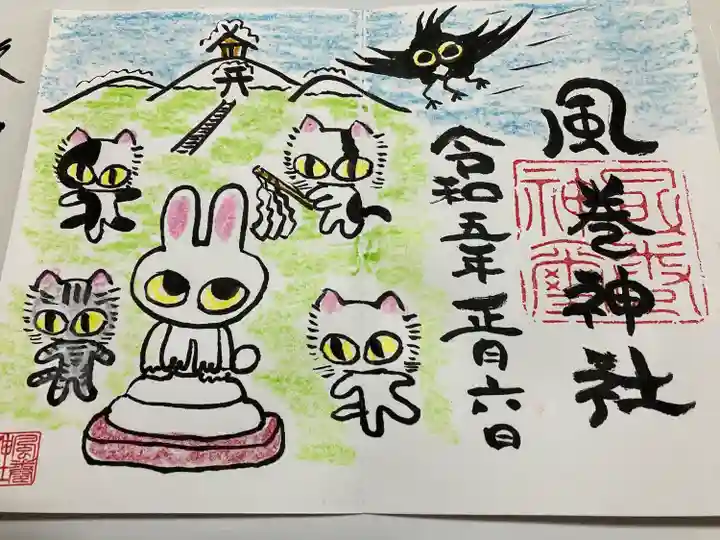 風巻神社
令和五年正月六日
風巻
神社